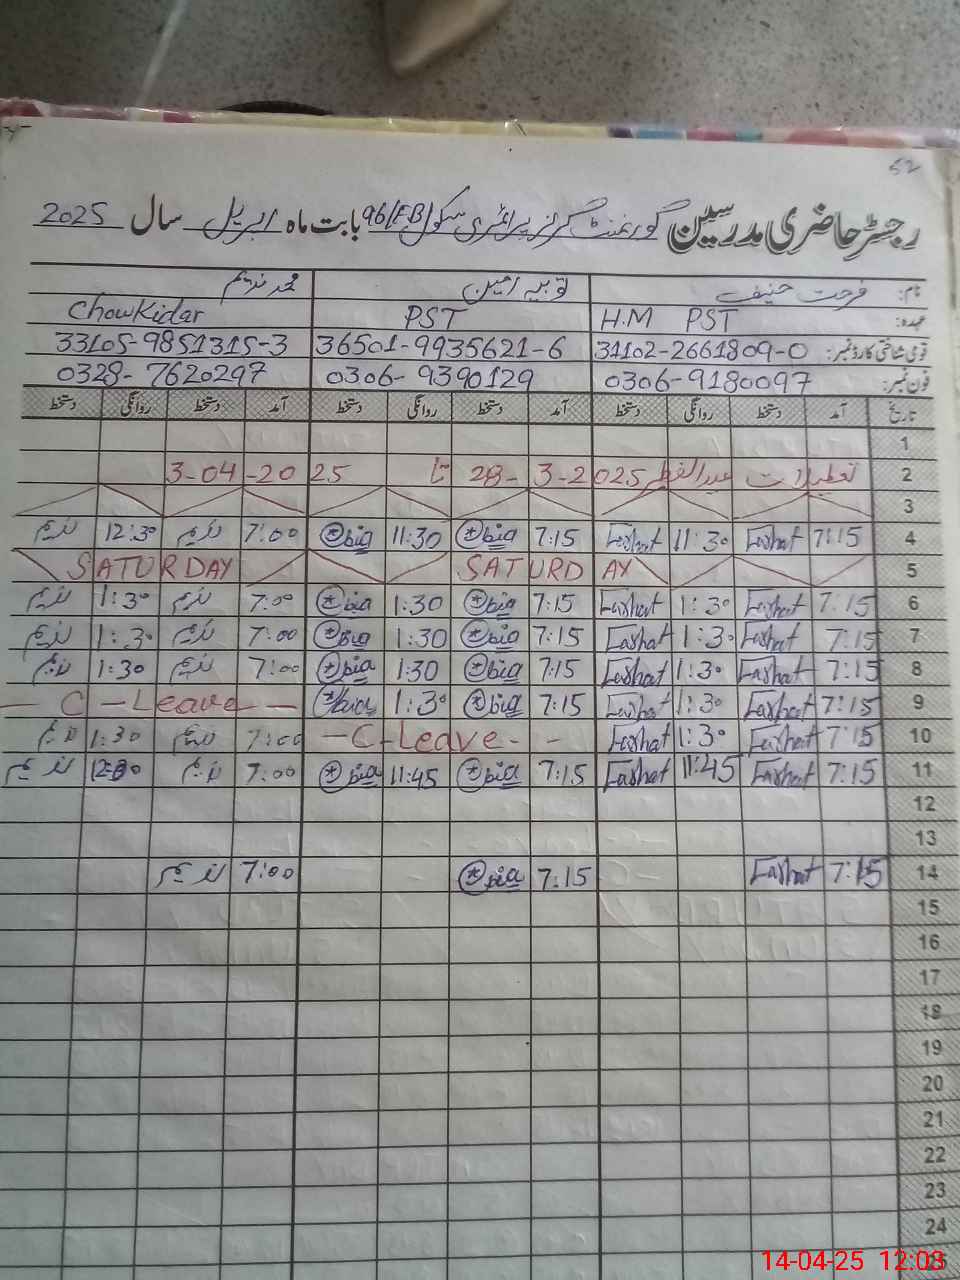 52
رجسٹر حاضری مدرسین گورنمنٹ گرلز پرائمری سکول 96/EB بابت ماہ اپریل سال 2025
نام: فرحت حنیف ثوبیہ امین محمد ندیم
عہدہ: H.M PST PST Chowkidar
قومی شناختی کارڈ نمبر: 31102-2661809-0 36501-9935621-6 33105-9851315-3
فون نمبر: 0306-9180097 0306-9390129 0328-7620297
تاریخ آمد دستخط روانگی دستخط آمد دستخط روانگی دستخط آمد دستخط روانگی دستخط
1
2 تعطیلات عیدالفطر 28-3-2025 تا 3-04-2025
3
4 7:15 Farhat 11:30 Farhat 7:15 bia 11:30 bia 7:00 ندیم 12:30 ندیم
5 SATURDAY SATURDAY
6 7:15 Farhat 1:30 Farhat 7:15 bia 1:30 bia 7:00 ندیم 1:30 ندیم
7 7:15 Farhat 1:30 Farhat 7:15 bia 1:30 bia 7:00 ندیم 1:30 ندیم
8 7:15 Farhat 1:30 Farhat 7:15 bia 1:30 bia 7:00 ندیم 1:30 ندیم
9 7:15 Farhat 1:30 Farhat 7:15 bia 1:30 bia — C - Leave —
10 7:15 Farhat 1:30 Farhat — C - Leave - - 7:00 ندیم 1:30 ندیم
11 7:15 Farhat 11:45 Farhat 7:15 bia 11:45 bia 7:00 ندیم ندیم
12
13
14 7:15 Farhat 7:15 bia 7:00 ندیم
15
16
17
18
19
20
21
22
23
24
25
14-04-25 12:03